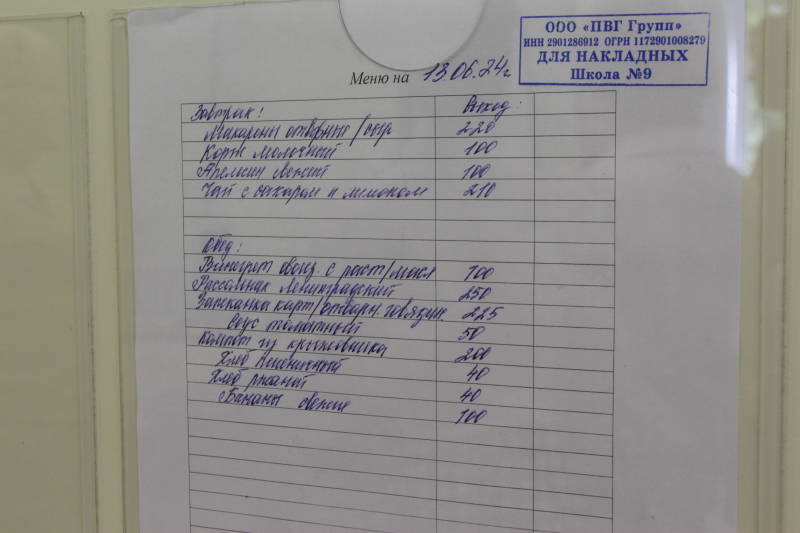 ООО «ПВГ Групп»
ИНН 2901286912 ОГРН 1172901008279
ДЛЯ НАКЛАДНЫХ
Школа №9
Меню на 13.06.24г
Завтрак: Выход:
Макароны отварные/сыр 220
Корж молочный 100
Апельсин свежий 100
Чай с сахаром и лимоном 210
Обед:
Винегрет овощ. с раст/масл 100
Рассольник Ленинградский 250
Запеканка карт/отварн. говядин. 225
Соус томатный 50
Компот из крыжовника 200
Хлеб пшеничный 40
Хлеб ржаной 40
Бананы свежие 100